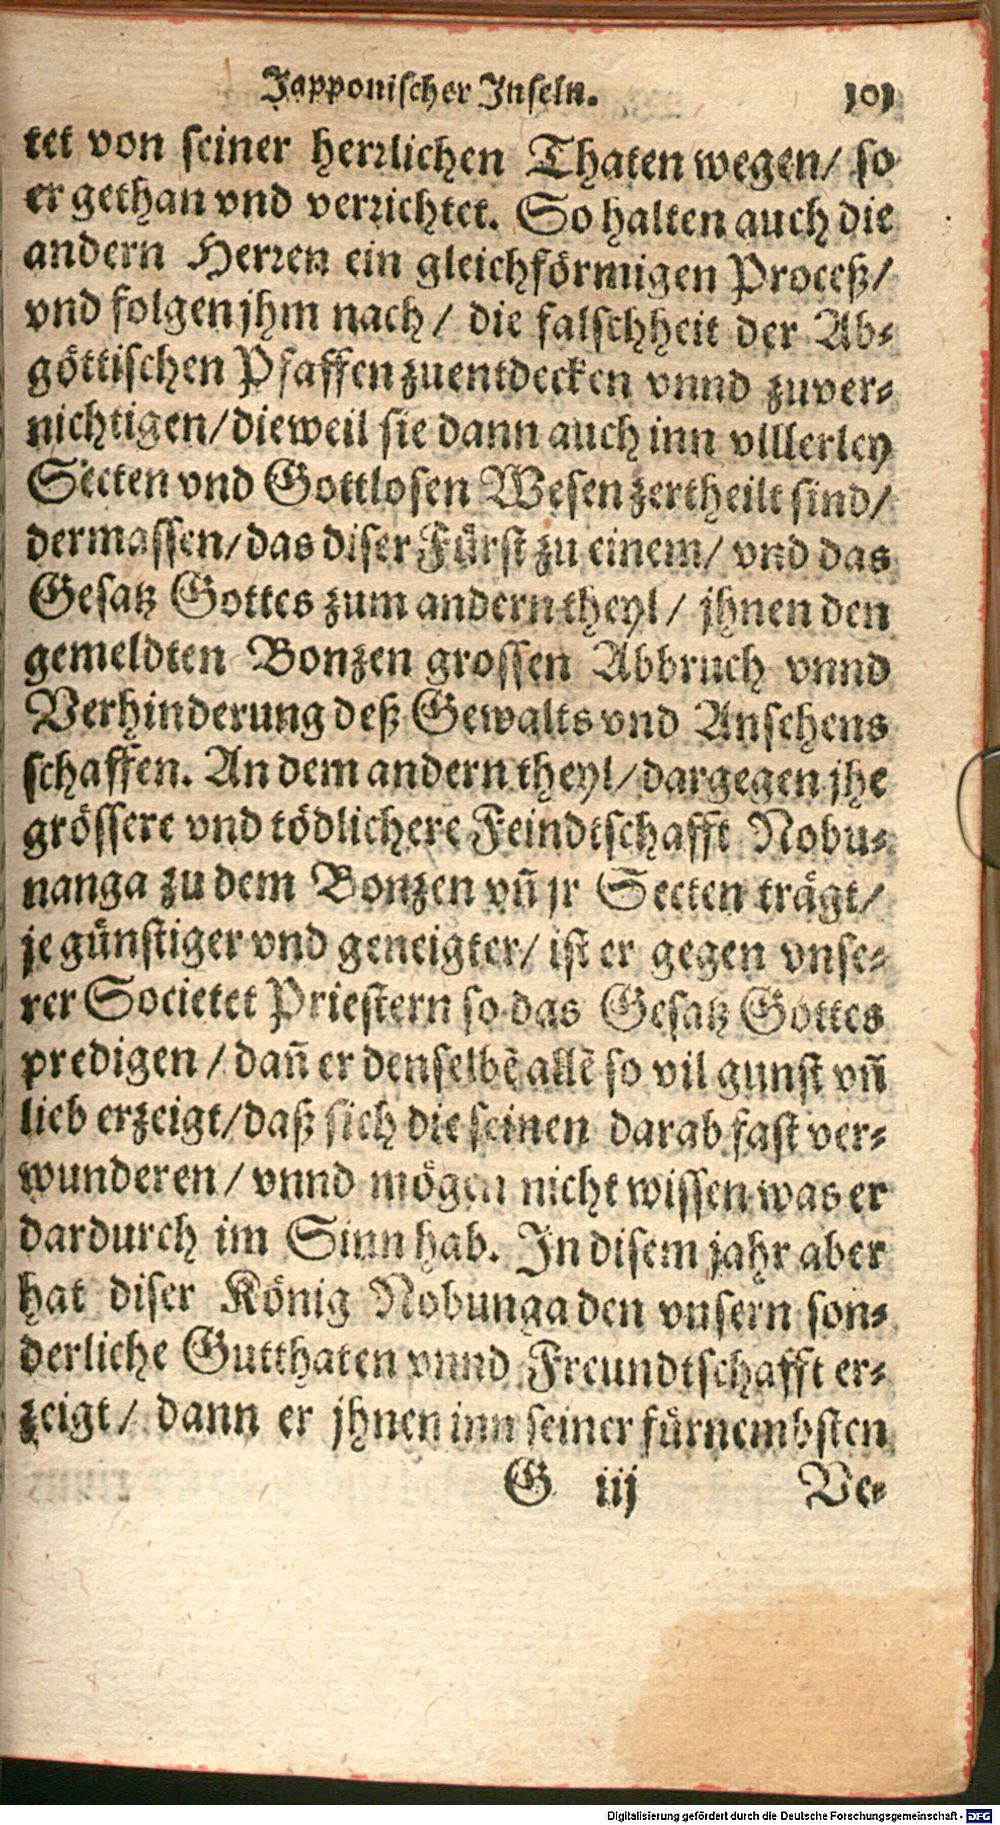 Japponischer Inseln. 101
tet von seiner herrlichen Thaten wegen/ so
er gethan vnd verrichtet. So halten auch die
andern Herren ein gleichförmigen Proceß/
vnd folgen jhm nach/ die falschheit der Ab-
göttischen Pfaffen zuentdecken vnnd zuver-
nichtigen/ dieweil sie dann auch inn vlllerley
Secten vnd Gottlosen Wesen zertheilt sind/
dermassen/ das diser Fürst zu einem/ vnd das
Gesatz Gottes zum andern theyl/ jhnen den
gemeldten Bonzen grossen Abbruch vnnd
Verhinderung deß Gewalts vnd Ansehens
schaffen. An dem andern theyl/ dargegen jhe
grössere vnd tödlichere Feindtschafft Nobu-
nanga zu dem Bonzen vñ jr Secten trägt/
je günstiger vnd geneigter/ ist er gegen vnse-
rer Societet Priestern so das Gesatz Gottes
predigen/ dañ er denselbẽ allẽ so vil gunst vñ
lieb erzeigt/ daß sich die seinen darab fast ver-
wunderen/ vnnd mögen nicht wissen was er
dardurch im Sinn hab. In disem jahr aber
hat diser König Nobunga den vnsern son-
derliche Gutthaten vnnd Freundtschafft er-
zeigt/ dann er jhnen inn seiner fürnembsten
G iij Ve-
Digitalisierung gefördert durch die Deutsche Forschungsgemeinschaft - DFG